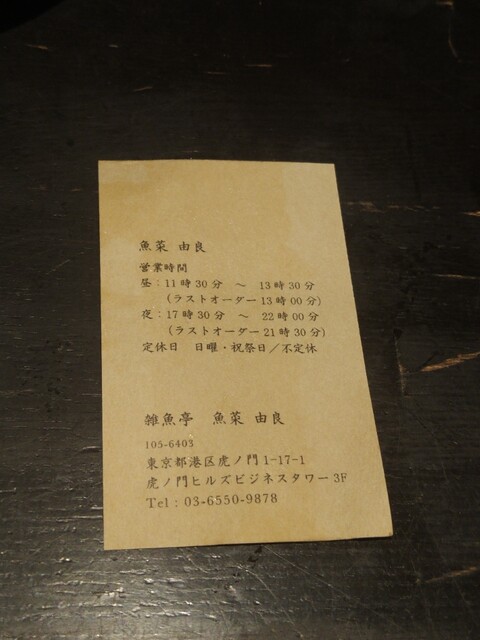 魚菜 由良
営業時間
昼：11時30分 ～ 13時30分
（ラストオーダー13時00分）
夜：17時30分 ～ 22時00分
（ラストオーダー21時30分）
定休日 日曜・祝祭日／不定休
雑魚亭 魚菜 由良
105-6403
東京都港区虎ノ門1-17-1
虎ノ門ヒルズビジネスタワー3F
Tel：03-6550-9878